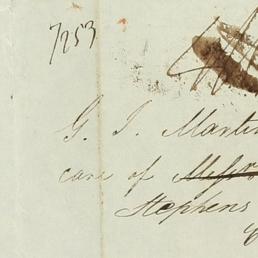 7253
G. J. Martin
care of Messrs
Stephens